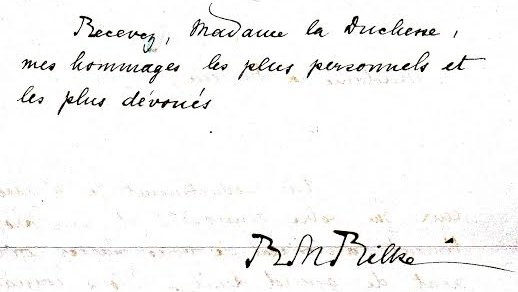 Recevez, Madame la Duchesse,
mes hommages les plus personnels et
les plus dévoués
RMRilke